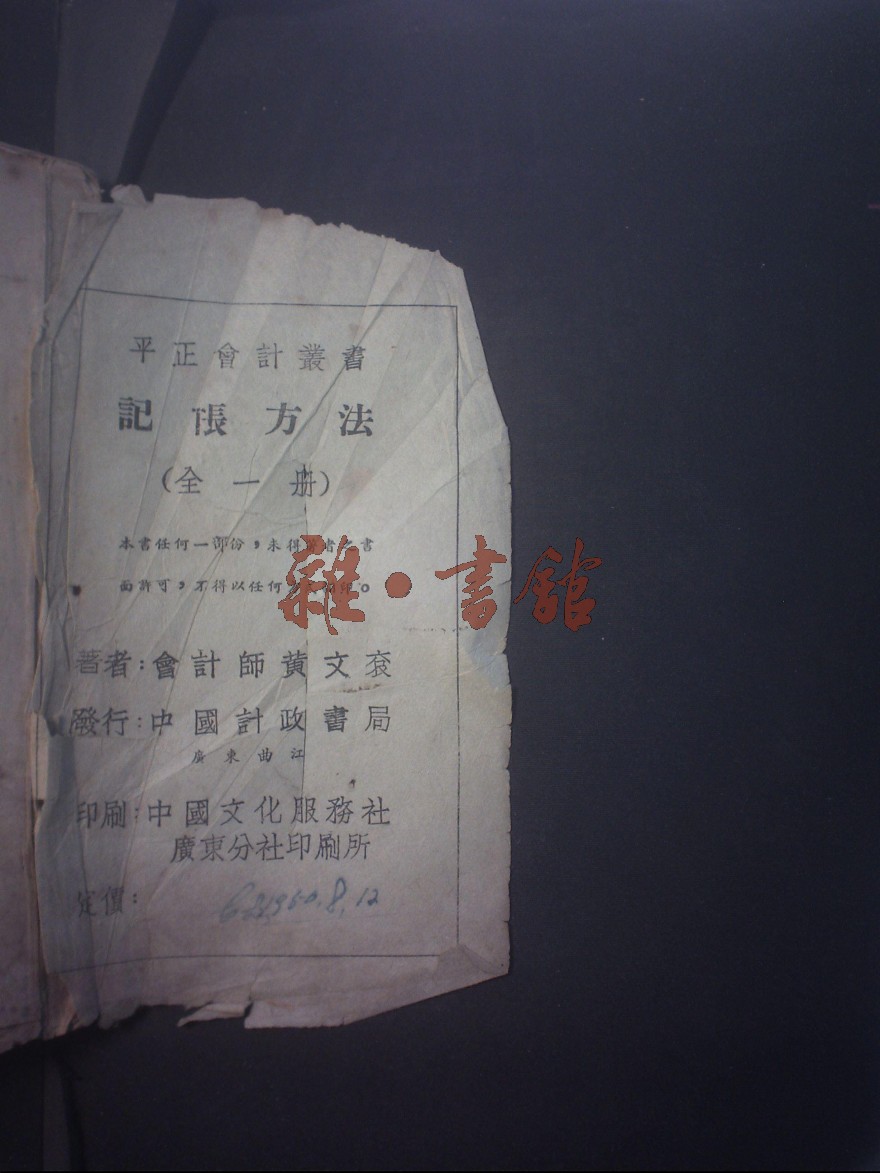 平正會計叢書
記帳方法
(全一册)
本書任何一部份，未得著者之書
面許可，不得以任何 印。
雜·書館
著者：會計師黃文袞
發行：中國計政書局
廣東曲江
印刷：中國文化服務社
廣東分社印刷所
定價：
1950.8.12